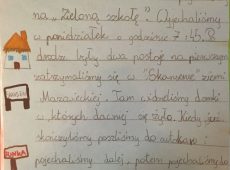 na „Zieloną szkołę". Wyjechaliśmy
w poniedziałek o godzinie 7:45. B
drodze były dwa postoje na pierwszym
zatrzymaliśmy się w "Skansenie" ziemi
Mazowieckiej. Tam widzieliśmy domki
w których dawniej się żyło. Kiedy już
skończyliśmy poszliśmy do autokaru i
pojechaliśmy dalej, potem pojechaliśmy do